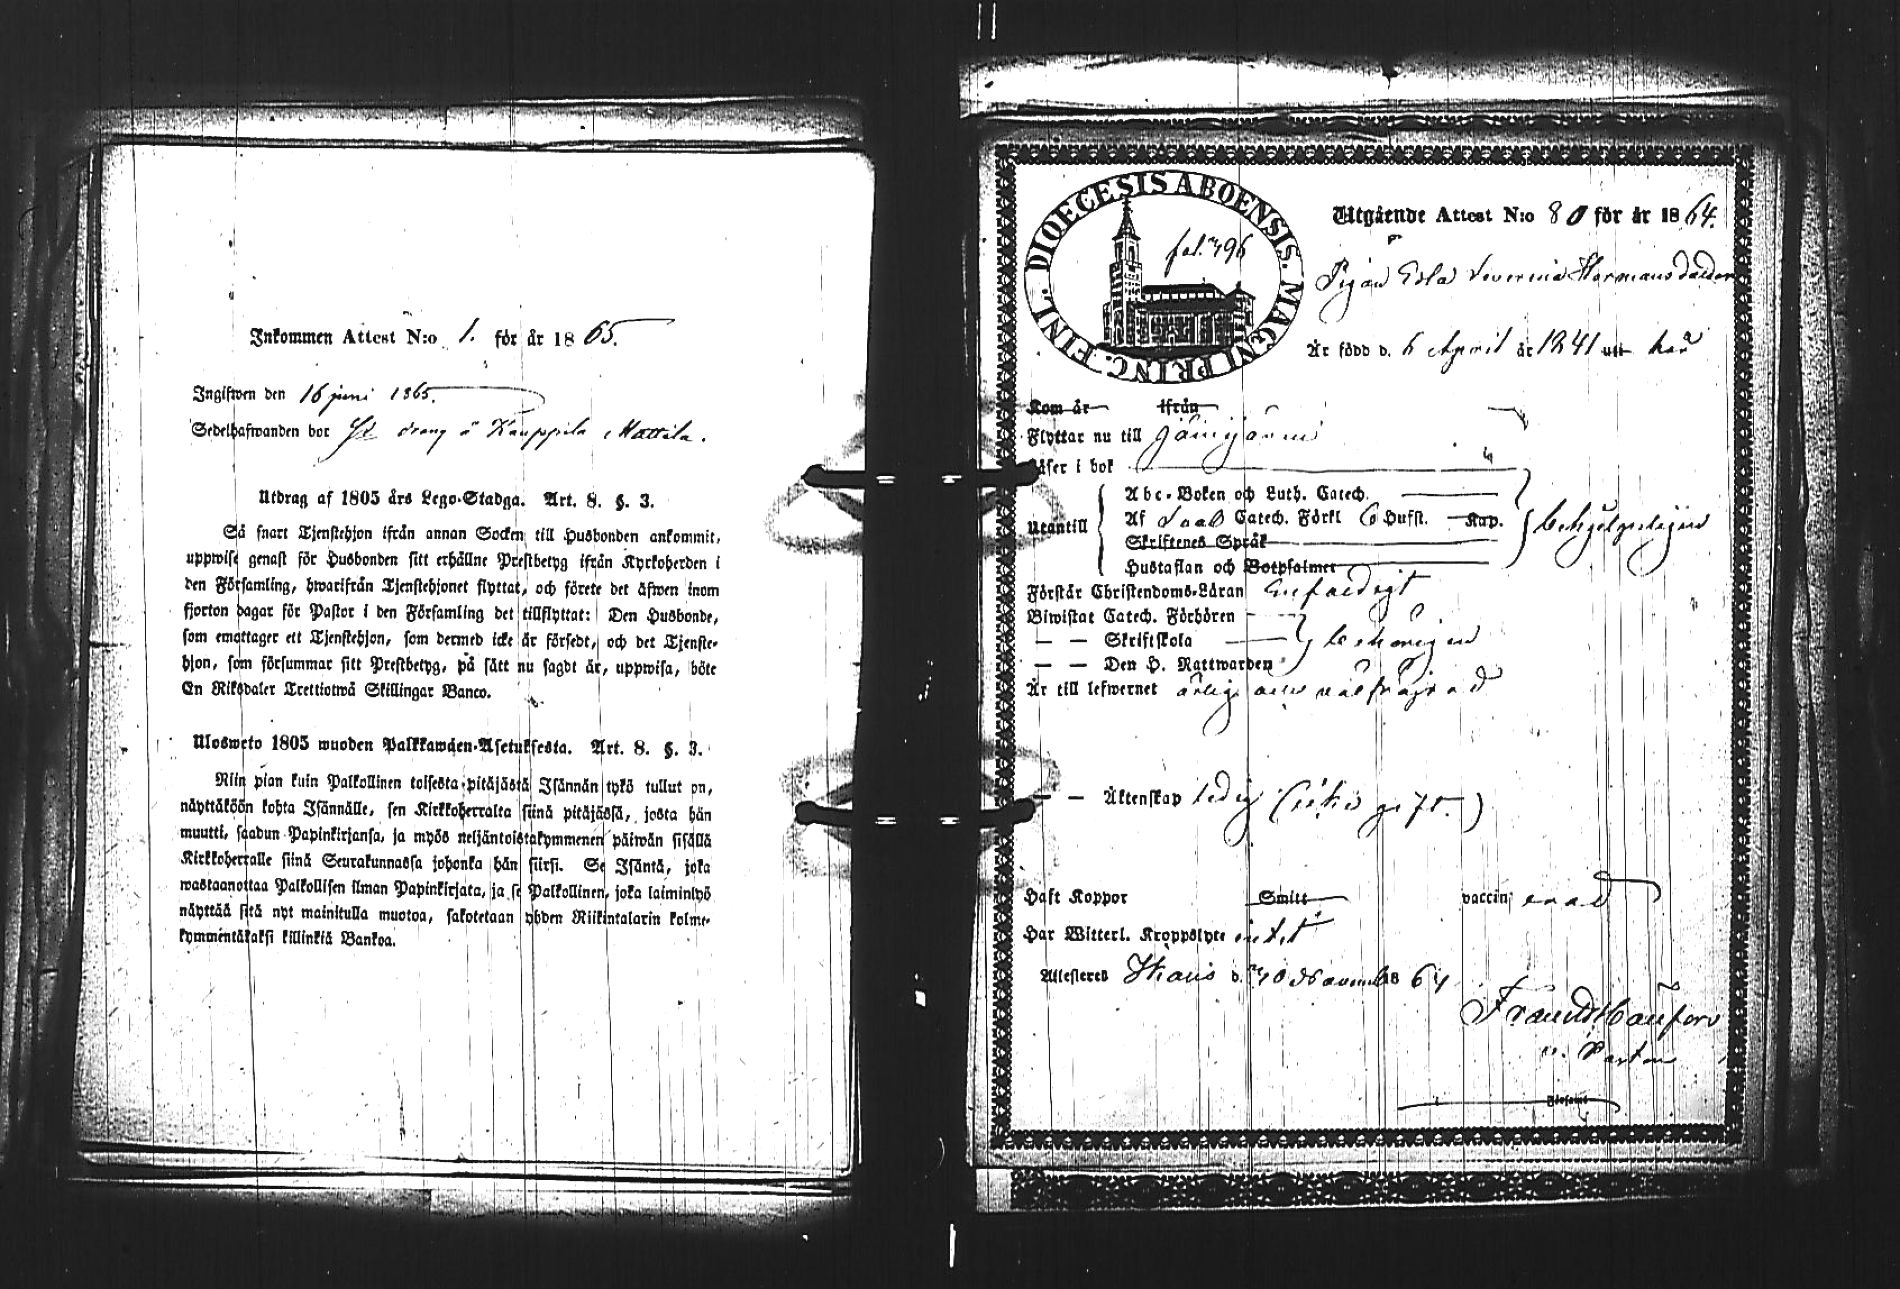 Inkommen Attest N:o 1. för år 1865.
Ingifwen den 16 juni 1865.
Sedelhafwanden bor drang å Kauppila Mattila.
Utdrag af 1805 års Lego-Stadga. Art. 8. §. 3.
Så snart Tjenstehjon ifrån annan Socken till Husbonden ankommit,
uppwise genast för Husbonden sitt erhållne Prestbetyg ifrån Kyrkoherden i
den Församling, hwarifrån Tjenstehjonet flyttat, och förete det äfwen inom
fjorton dagar för Pastor i den Församling det tillflyttat: Den Husbonde,
som emottager ett Tjenstehjon, som dermed icke är försedt, och det Tjenste-
hjon, som försummar sitt Prestbetyg, på sätt nu sagdt är, uppwisa, böte
En Riksdaler Trettiotwå Skillingar Banco.
Ulosweto 1805 wuoden Palkkawäen-Asetuksesta. Art. 8. §. 3.
Niin pian kuin Palkollinen toisesta pitäjästä Isännän tykö tullut on,
näyttäköön kohta Isännälle, sen Kirkkoherralta siinä pitäjässä, josta hän
muutti, saadun Papinkirjansa, ja myös neljäntoistakymmenen päiwän sisällä
Kirkkoherralle siinä Seurakunnassa johonka hän siirsi. Se Isäntä, joka
wastaanottaa Palkollisen ilman Papinkirjata, ja se Palkollinen, joka laiminlyö
näyttää sitä nyt mainitulla muotoa, sakotetaan yhden Riikintalarin kolme-
kymmentäkaksi killinkiä Bankoa.
DIOECESIS ABOENSIS. MAGNI PRINC. FINL.
fol. 496
Utgående Attest N:o 80 för år 1864.
Pigan Hermansdotter
Är född d. 6 April år 1841 uti här
Kom år ifrån
Flyttar nu till Jämijärvi
Läser i bok
Utantill
Abc-Boken och Luth. Catech.
Af Catech. Förkl 6 Hufst. Kap.
Skriftenes Språk
Hustaflan och Botpsalmer
Förstår Christendoms-Läran Enfaldigt
Biwistat Catech. Förhören
— — Skriftskola
— — Den H. Nattwarden
Är till lefwernet ärlig och välfräjdad
— — Äktenskap ledig (icke gift.)
Haft Koppor Smitt vaccinerad
Har Witterl. Kroppslyte intet
Attesteras Ikalis d. November 18 64
v. Pastor
Församl.